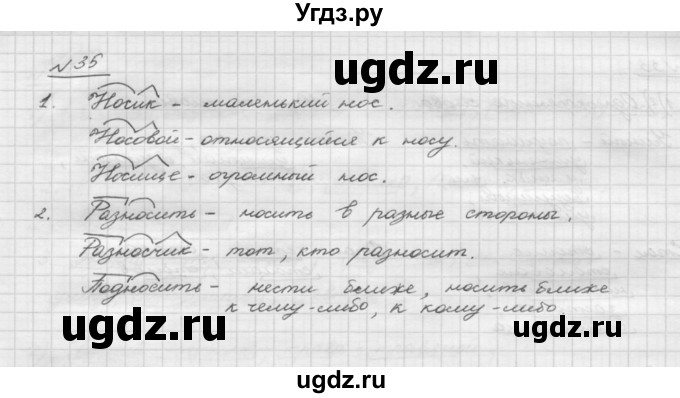 Угдз.ру
№35
1. Носик - маленький нос.
Носовой - относящийся к носу.
Носище - огромный нос.
2. Разносить - носить в разные стороны.
Разносчик - тот, кто разносит.
Подносить - нести ближе, носить ближе
к чему-либо, к кому-либо
ugdz.ru
ugdz.ru
ugdz.ru
ugdz.ru
ugdz.ru